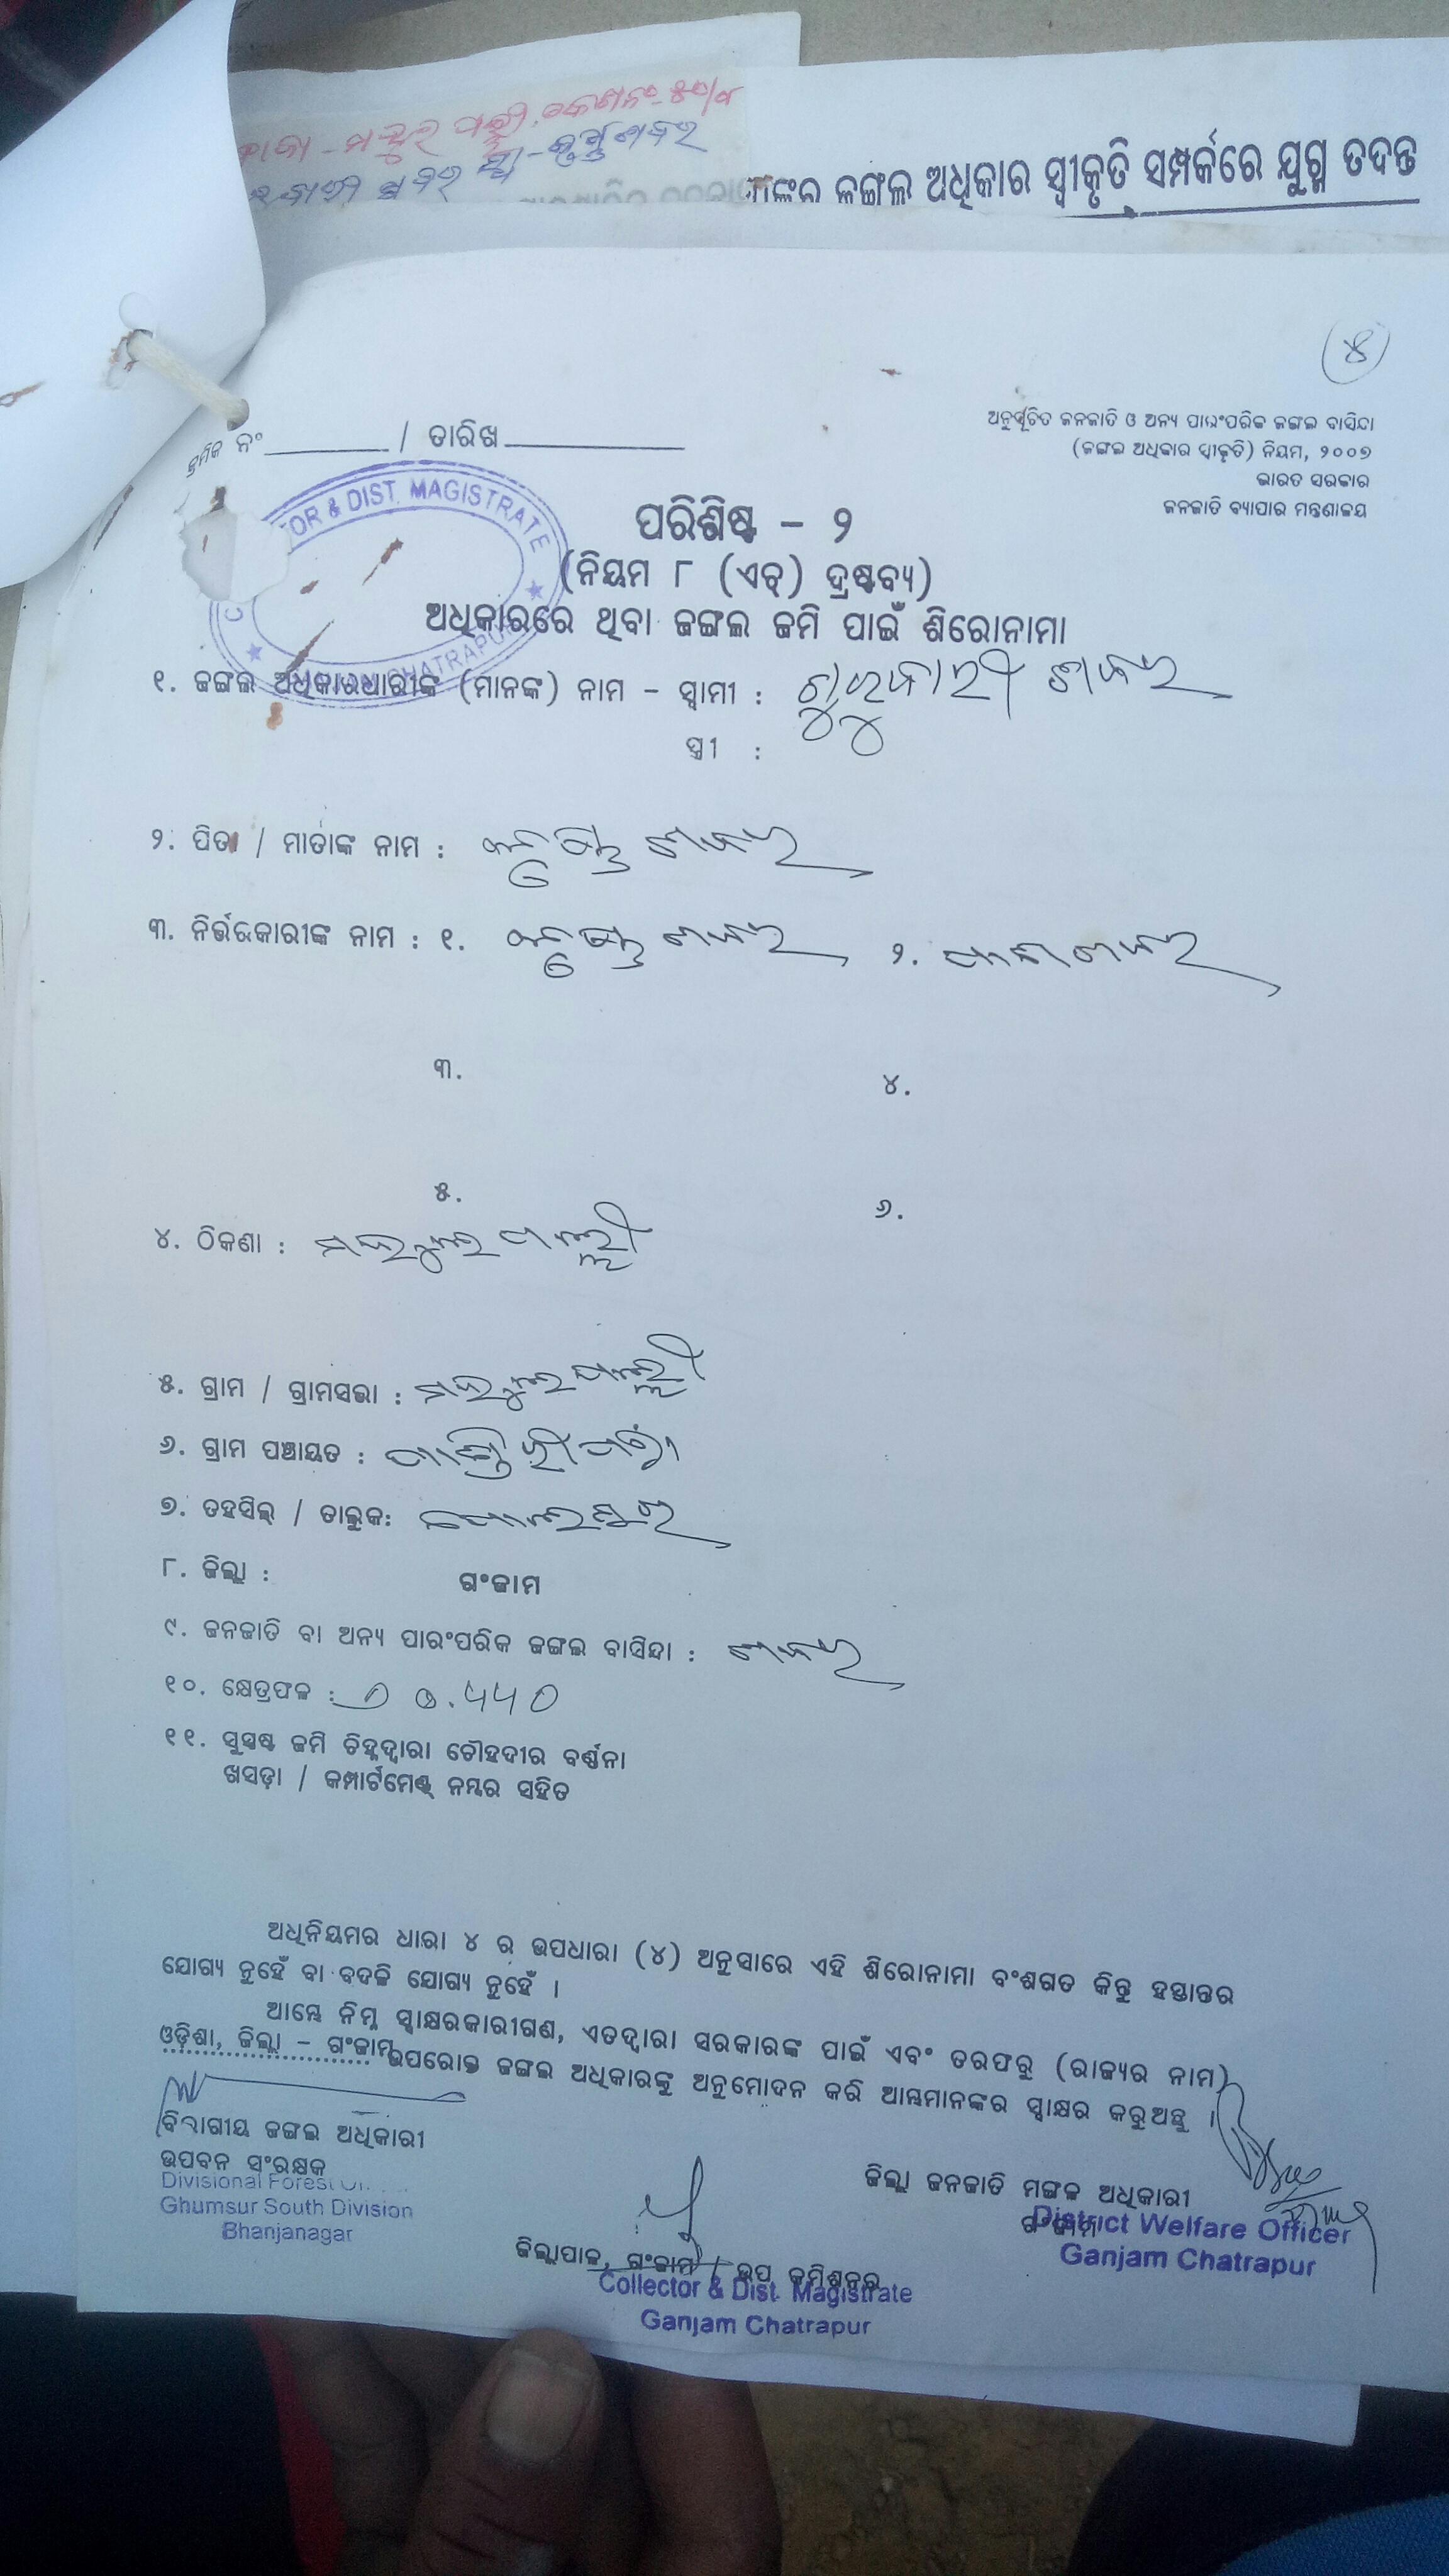 ଙ୍କର ଜଙ୍ଗଲ ଅଧିକାର ସ୍ୱୀକୃତି ସମ୍ପର୍କରେ ଯୁଗ୍ମ ତଦନ୍ତ
୪
କ୍ରମିକ ନଂ / ତାରିଖ
ଅନୁସୂଚିତ ଜନଜାତି ଓ ଅନ୍ୟ ପାରଂପରିକ ଜଙ୍ଗଲ ବାସିନ୍ଦା
(ଜଙ୍ଗଲ ଅଧିକାର ସ୍ୱୀକୃତି) ନିୟମ, ୨୦୦୭
ଭାରତ ସରକାର
ଜନଜାତି ବ୍ୟାପାର ମନ୍ତ୍ରଣାଳୟ
OR & DIST. MAGISTRATE
CHATRAPUR
ପରିଶିଷ୍ଟ – ୨
(ନିୟମ ୮ (ଏଚ୍) ଦ୍ରଷ୍ଟବ୍ୟ)
ଅଧିକାରରେ ଥିବା ଜଙ୍ଗଲ ଜମି ପାଇଁ ଶିରୋନାମା
୧. ଜଙ୍ଗଲ ଅଧିକାରଧାରୀଙ୍କ (ମାନଙ୍କ) ନାମ – ସ୍ୱାମୀ : ଶବର
ସ୍ତ୍ରୀ :
୨. ପିତା / ମାତାଙ୍କ ନାମ : ଶବର
୩. ନିର୍ଭରକାରୀଙ୍କ ନାମ : ୧. ଶବର ୨. ଶବର
୩. ୪.
୫. ୬.
୪. ଠିକଣା :
୫. ଗ୍ରାମ / ଗ୍ରାମସଭା :
୬. ଗ୍ରାମ ପଞ୍ଚାୟତ :
୭. ତହସିଲ୍ / ତାଲୁକ:
୮. ଜିଲ୍ଲା : ଗଂଜାମ
୯. ଜନଜାତି ବା ଅନ୍ୟ ପାରଂପରିକ ଜଙ୍ଗଲ ବାସିନ୍ଦା : ଶବର
୧୦. କ୍ଷେତ୍ରଫଳ :
୧୧. ସୁସ୍ପଷ୍ଟ ଜମି ଚିହ୍ନଦ୍ୱାରା ଚୌହଦୀର ବର୍ଣ୍ଣନା
ଖସଡ଼ା / କମ୍ପାର୍ଟମେଣ୍ଟ୍ ନମ୍ବର ସହିତ
ଅଧିନିୟମର ଧାରା ୪ ର ଉପଧାରା (୪) ଅନୁସାରେ ଏହି ଶିରୋନାମା ବଂଶଗତ କିନ୍ତୁ ହସ୍ତାନ୍ତର
ଯୋଗ୍ୟ ନୁହେଁ ବା ବଦଳି ଯୋଗ୍ୟ ନୁହେଁ ।
ଆମ୍ଭେ ନିମ୍ନ ସ୍ୱାକ୍ଷରକାରୀଗଣ, ଏତଦ୍ୱାରା ସରକାରଙ୍କ ପାଇଁ ଏବଂ ତରଫରୁ (ରାଜ୍ୟର ନାମ)
ଓଡ଼ିଶା, ଜିଲ୍ଲା – ଗଂଜାମ ଉପରୋକ୍ତ ଜଙ୍ଗଲ ଅଧିକାରଙ୍କୁ ଅନୁମୋଦନ କରି ଆମ୍ଭମାନଙ୍କର ସ୍ୱାକ୍ଷର କରୁଅଛୁ ।
ବିଭାଗୀୟ ଜଙ୍ଗଲ ଅଧିକାରୀ
ଉପବନ ସଂରକ୍ଷକ
Divisional Forest
Ghumsur South Division
Bhanjanagar
ଜିଲ୍ଲା ଜନଜାତି ମଙ୍ଗଳ ଅଧିକାରୀ
ଗଂଜାମ
District Welfare Officer
Ganjam Chatrapur
ଜିଲ୍ଲାପାଳ, ଗଂଜାମ / ଉପ କମିଶନର
Collector & Dist. Magistrate
Ganjam Chatrapur